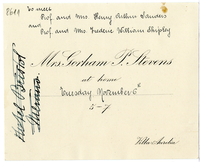 2611
To meet
Prof. and Mrs. Henry Arthur Sanders
and
Prof. and Mrs. Frederic William Shipley
Mrs. Gorham P. Stevens
at home
Tuesday November 6th
5-7
Villa Aurelia
Hotel Bristol